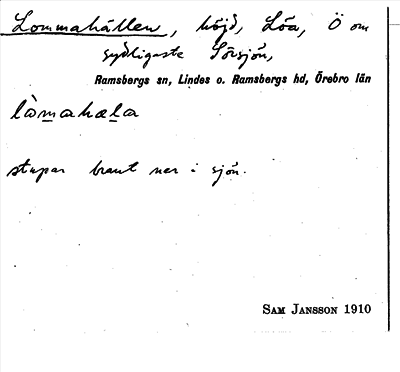 Lommahällen, höjd, Löa, Ö om
sydligaste Sörsjön,
Ramsbergs sn, Lindes o. Ramsbergs hd, Örebro län
làmahæla
stupar brant ner i sjön.
SAM JANSSON 1910